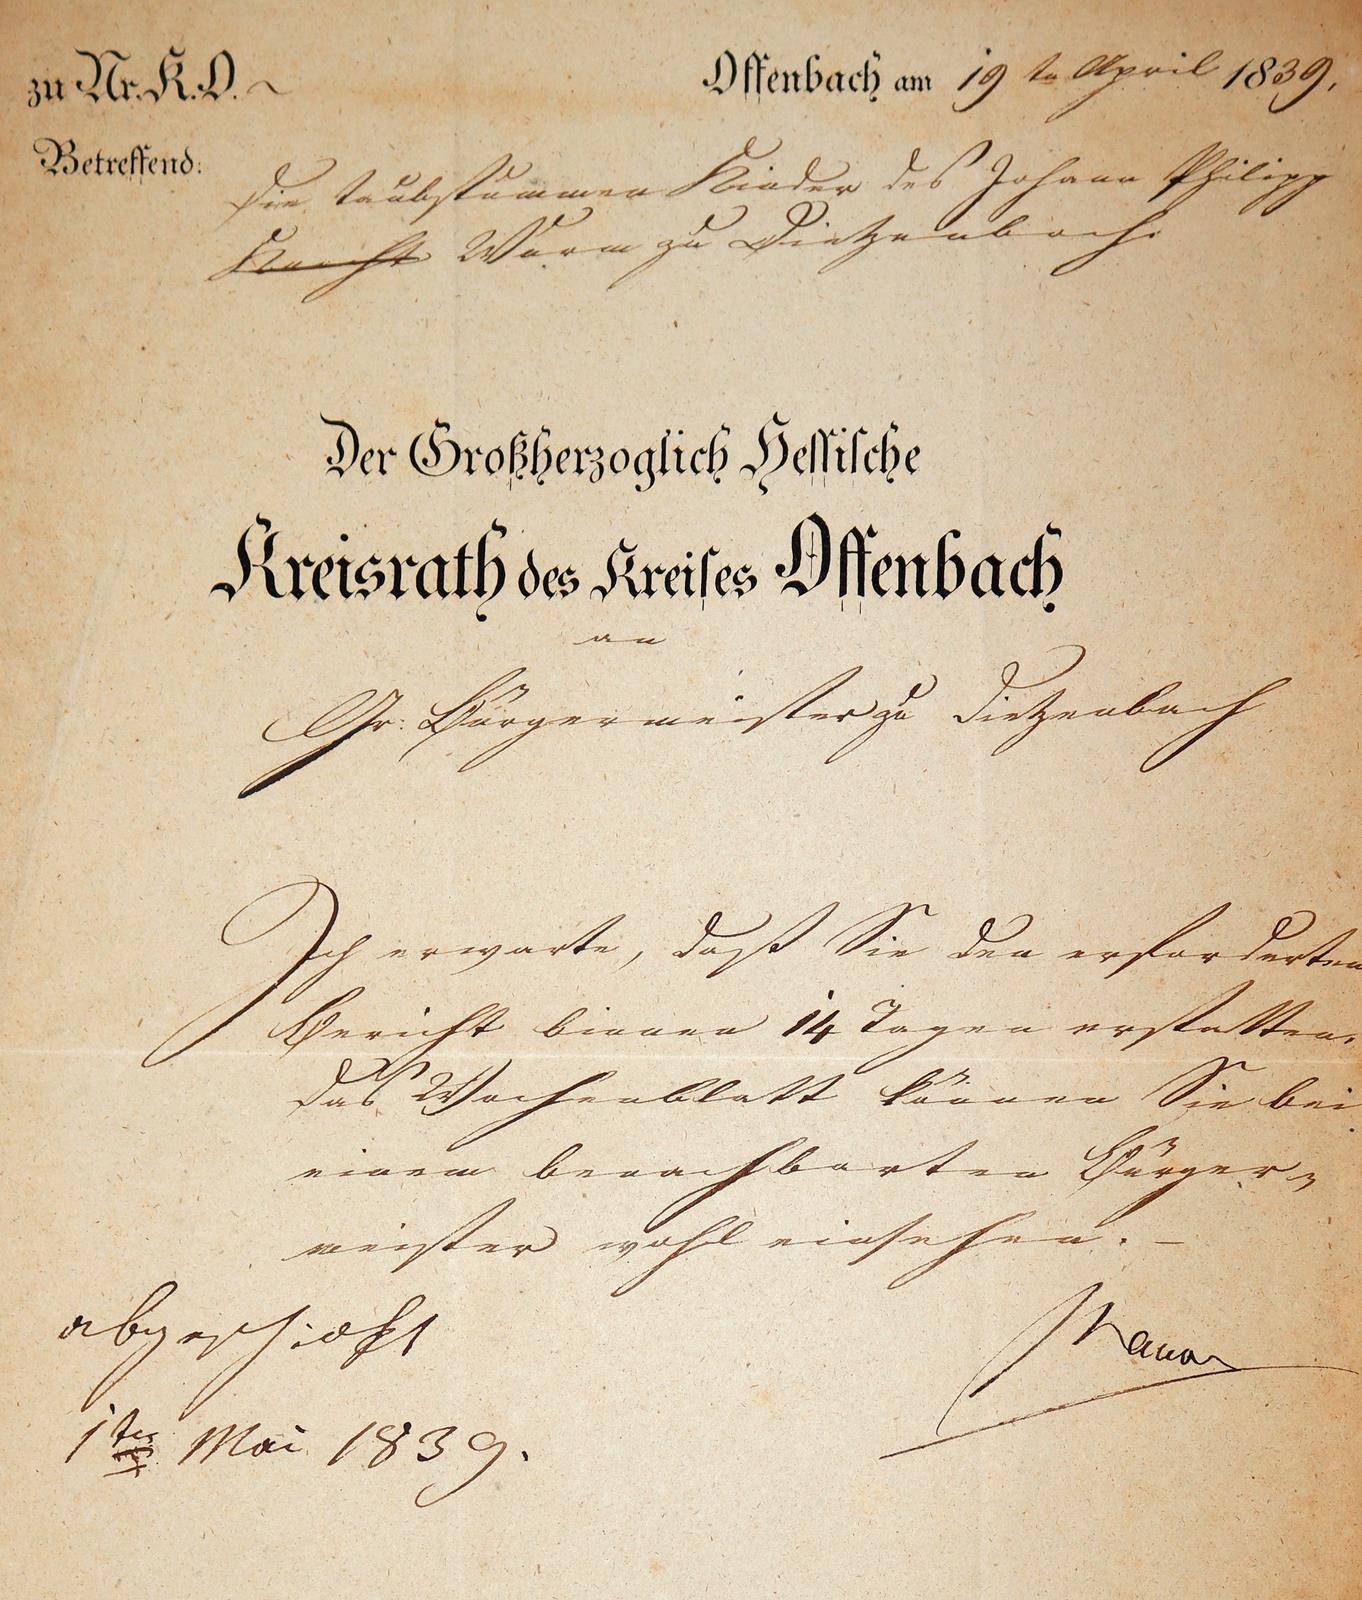 zu Nr. K. O. ~
Offenbach am 19ten April 1839.
Betreffend:
Die taubstummen Kinder des Johann Philipp
Wurm zu Dietzenbach.
Der Großherzoglich Hessische
Kreisrath des Kreises Offenbach
an
Gr. Bürgermeister zu Dietzenbach
Ich erwarte, daß Sie den erforderten
Bericht binnen 14 Tagen erstatten.
Das Wochenblatt können Sie bei
einem benachbarten Bürger-
meister wohl einsehen. –
abgeschickt
1ten Mai 1839.